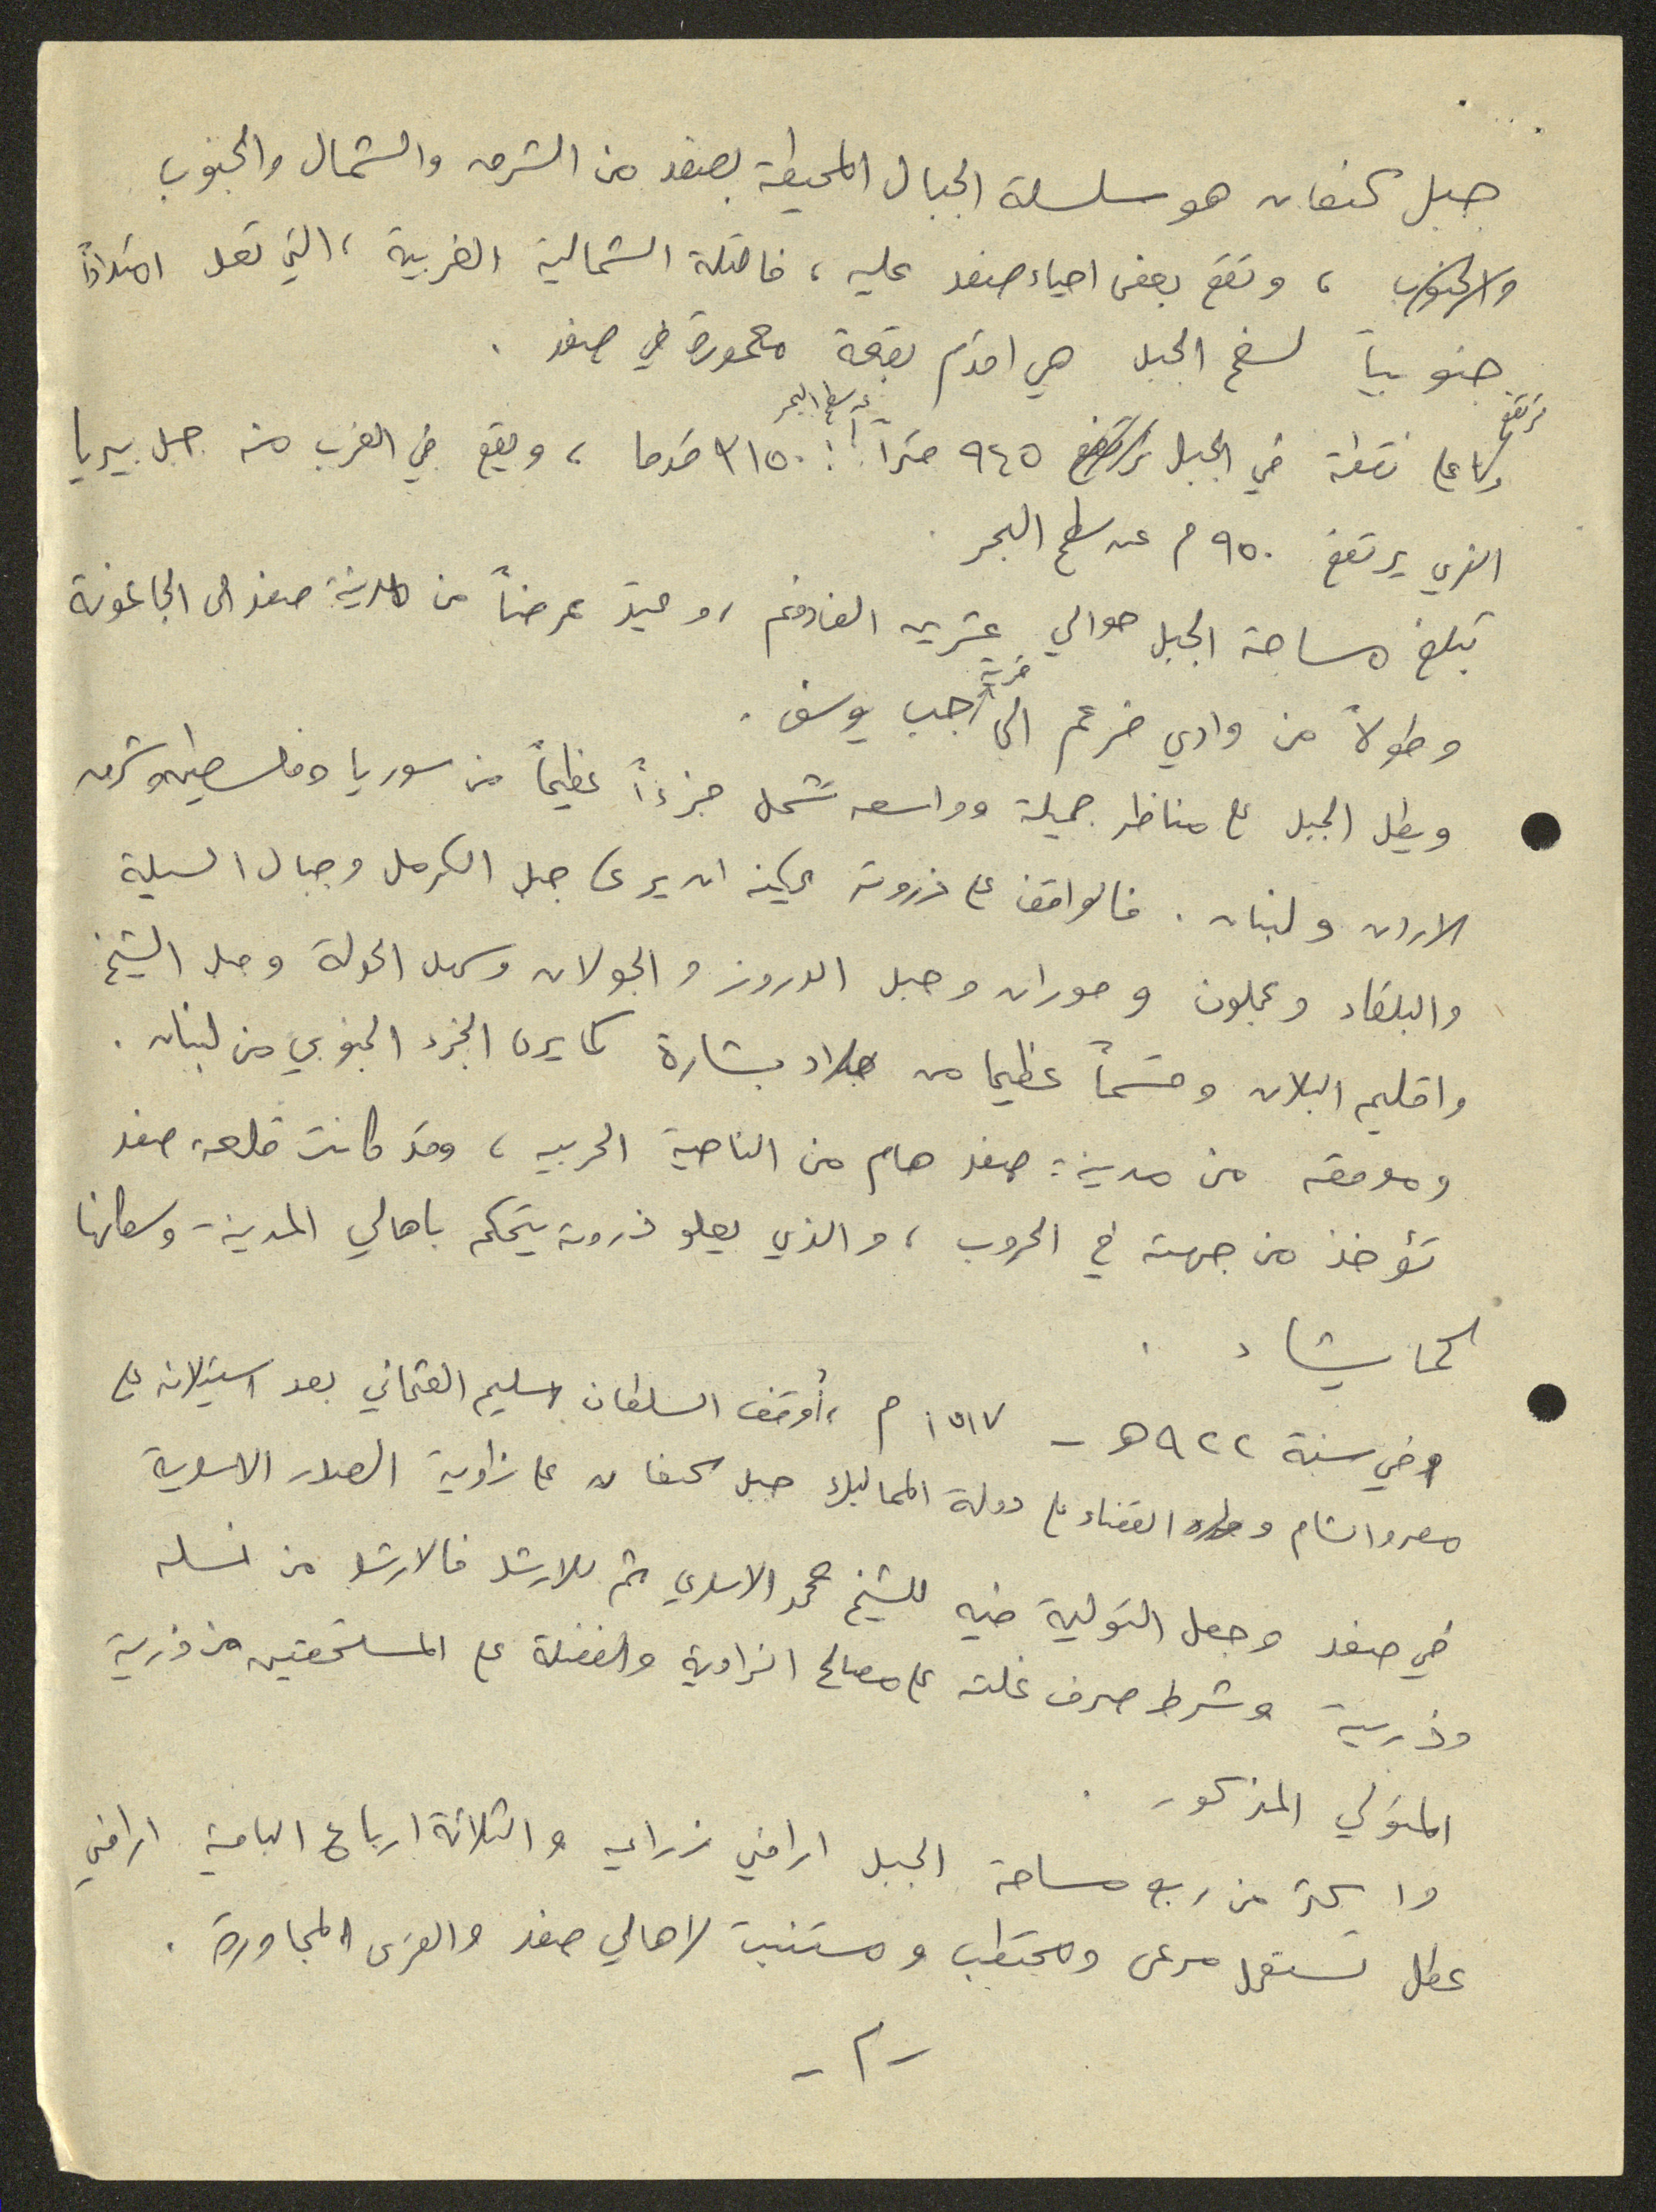 جبل كنعان هو سلسلة الجبال المحيطة بصفد من الشرق والشمال والجنوب
والجنوب ، وتقع بعض احياء صفد عليه ، فالتلة الشمالية الغربية ، التي تعد امتداداً
جنوبياً لسفح الجبل هي اقدم بقعة معمورة في صفد .
ترتفع عن سطح البحر
اعلى نقطة في الجبل ترتفع ٩٤٥ متراً : ٣١٥٠ قدما ، ويقع في الغرب منه جبل بيريا
الذي يرتفع ٩٥٠ م عن سطح البحر .
تبلغ مساحة الجبل حوالي عشرين الف دونم ، وعيتد عرضاً من مدينة صفد الى الجاعونة
وطولاً من وادي ضرغم الى خربة جب يوسف .
ويطل الجبل على مناظر جميلة وواسعه تشمل جزءاً عظيماً من سوريا وفلسطين وشرق
الاردن ولبنان . فالواقف على ذروته يمكنه ان يرى جبل الكرمل وجبال السيلة
والبلقاء وعجلون وحوران وجبل الدروز والجولان وسهل الحولة وجبل الشيخ
واقليم البلان وقسماً عظيما من بلاد بشارة كما يرى الجزء الجنوبي من لبنان .
وموقعه من مدينة صفد هام من الناحية الحربيه ، وقد كانت قلعة صفد
تؤخذ من جهته في الحروب ، والذي يعلو ذروته يتحكم باهالي المدينة وسكانها
كما يشاء .
وفي سنة ٩٢٢ هـ - ١٥١٧ م ، أوقف السلطان سليم العثماني بعد استيلائه على
مصر والشام والقضاء على دولة المماليك جبل كنعان على زاوية الصدر الاسدية
في صفد وجعل التولية فيه للشيخ محمد الاسدي ثم للارشد فالارشد من نسله
وذريته وشرط صرف غلته على مصالح الزاوية والفضلة على المستحقين من ذرية
المتولي المذكور .
واكثر من ربع مساحة الجبل اراضي زراعيه والثلاثة ارباع الباقية اراضي
عطل تستعمل مرعى ومحتطب ومستنبت لاهالي صفد والقرى المجاورة .
- ٢ -